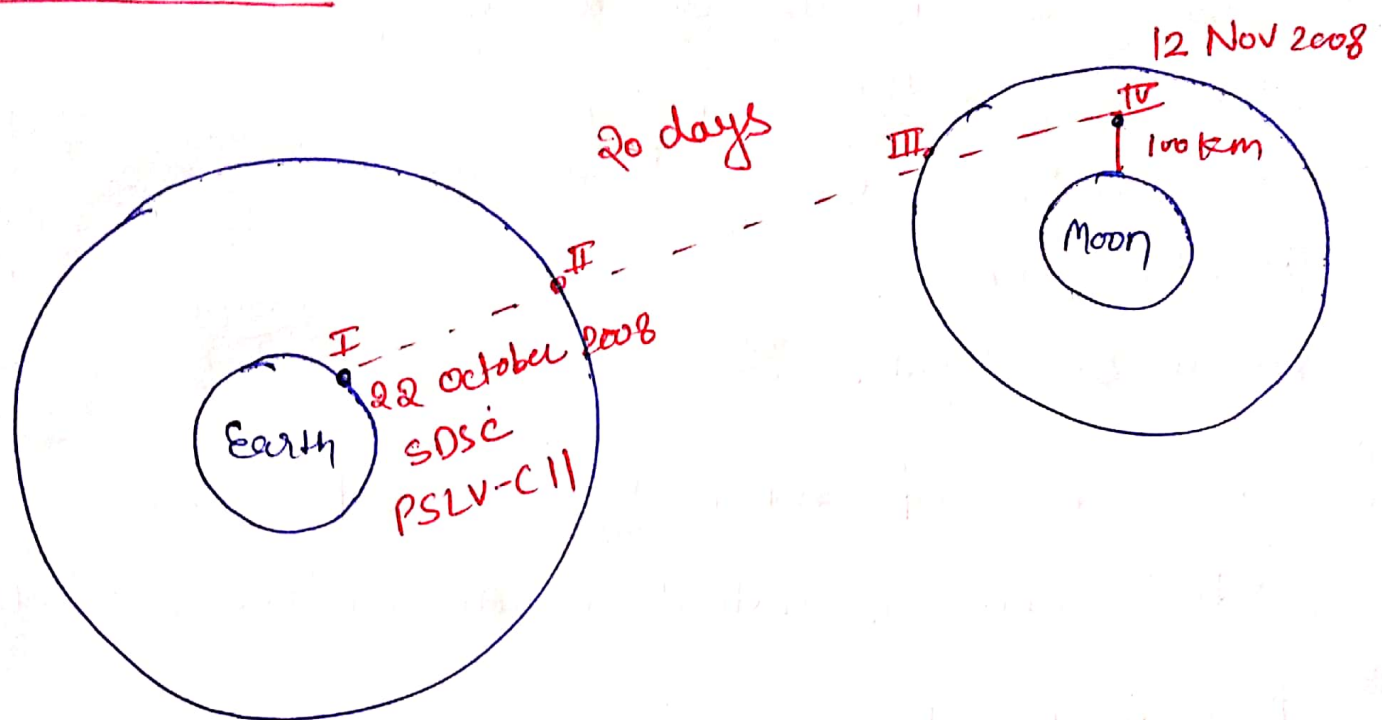 12 Nov 2008
20 days
III
IV
100 km
Moon
II
I
22 october 2008
SDSC
PSLV-C11
Earth